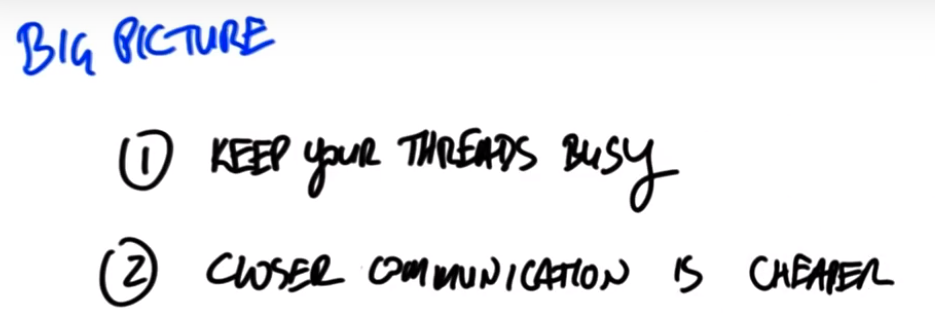 BIG PICTURE
① KEEP your THREADS BUSY
② CLOSER COMMUNICATION IS CHEAPER